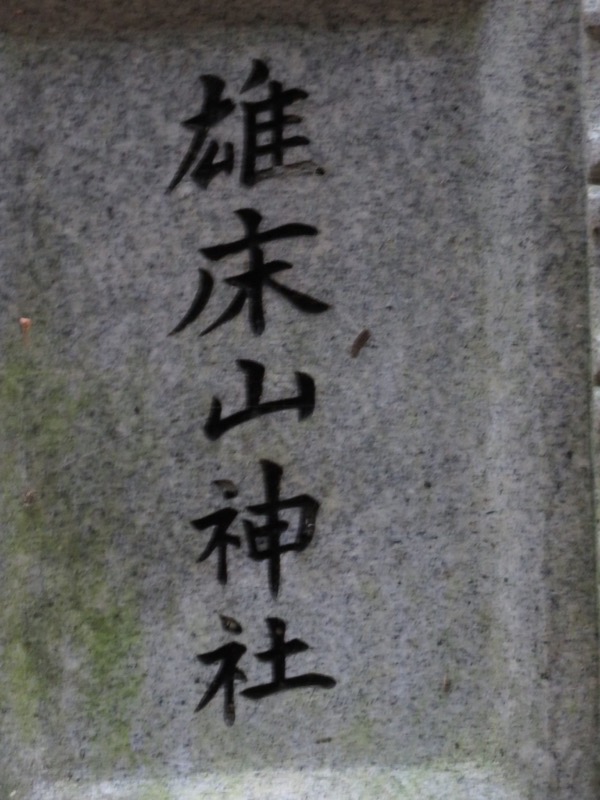 雄床山神社